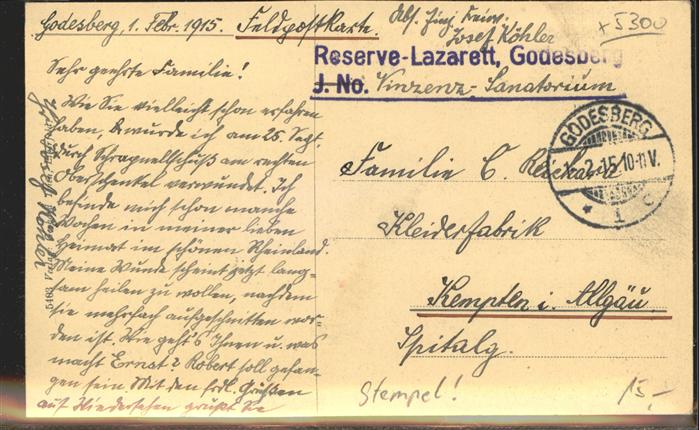 Godesberg, 1. Febr. 1915. Feldpostkarte.
Sehr geehrte Familie!
Wie Sie vielleicht schon erfahren
haben, wurde ich am 25. Sept.
durch Schrapnellschuß am rechten
Oberschenkel verwundet. Ich
befinde mich schon manche
Wochen in meiner lieben
Heimat im schönen Rheinland.
Meine Wunde scheint jetzt lang-
sam heilen zu wollen, nachdem
sie mehrfach aufgeschnitten wor-
den ist. Wie geht's Ihnen u. was
macht Ernst? Robert soll gefan-
gen sein. Mit den frdl. Grüßen
auf Wiedersehen grüßt Sie
Köhler
5163
Abs.
Josef Köhler
+5300
Reserve-Lazarett, Godesberg
J. No. Vinzenz-Sanatorium
GODESBERG
1.2.15.10-11V.
* 1 c
Familie C.
Kleiderfabrik
Kempten i. Allgäu.
Spitalg.
Stempel!
15,-